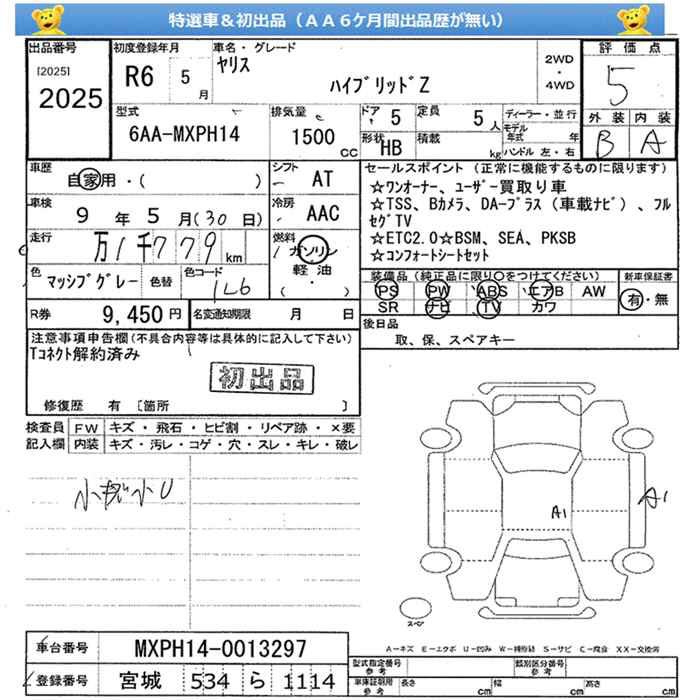 特選車＆初出品（ＡＡ６ケ月間出品歴が無い）
出品番号
[2025]
2025
初度登録年月
R6 5月
車名・グレード
ヤリス
ハイブリッドZ
2WD
・
4WD
評価点
5
外装 内装
B A
型式
6AA-MXPH14
排気量
1500 CC
ドア 5
定員 5人
形状 HB
積載 kg
ディーラー・並行
モデル年式 年
ハンドル 左・右
車歴
自家用・( )
シフト
AT
車検
9年5月(30日)
冷房
AAC
走行
万1千779km
燃料
ガソリン
軽油
( )
色
マッシブグレー
色替
色コード
1L6
R券 9,450円
名変通知期限 月 日
セールスポイント（正常に機能するものに限ります）
☆ワンオーナー、ユーザー買取り車
☆TSS、Bカメラ、DAープラス（車載ナビ）、フル
セグTV
☆ETC2.0☆BSM、SEA、PKSB
☆コンフォートシートセット
装備品（純正品に限り○をつけてください）
PS PW ABS エアB AW
SR ナビ TV カワ
新車保証書
有・無
後日品
取、保、スペアキー
注意事項申告欄(不具合内容等は具体的に記入して下さい)
Tコネクト解約済み
初出品
修復歴 有 [箇所 ]
検査員記入欄
FW キズ・飛石・ヒビ割・リペア跡・×要
内装 キズ・汚レ・コゲ・穴・スレ・キレ・破レ
A1
A1
スペア
A=キズ E=エクボ U=凹み W=補修跡 S=サビ C=腐食 XX=交換済
車台番号 MXPH14-0013297
登録番号 宮城 534 ら 1114
型式指定番号 参考
類別区分番号 参考
車庫証明用 参考 長さ cm 幅 cm 高さ cm